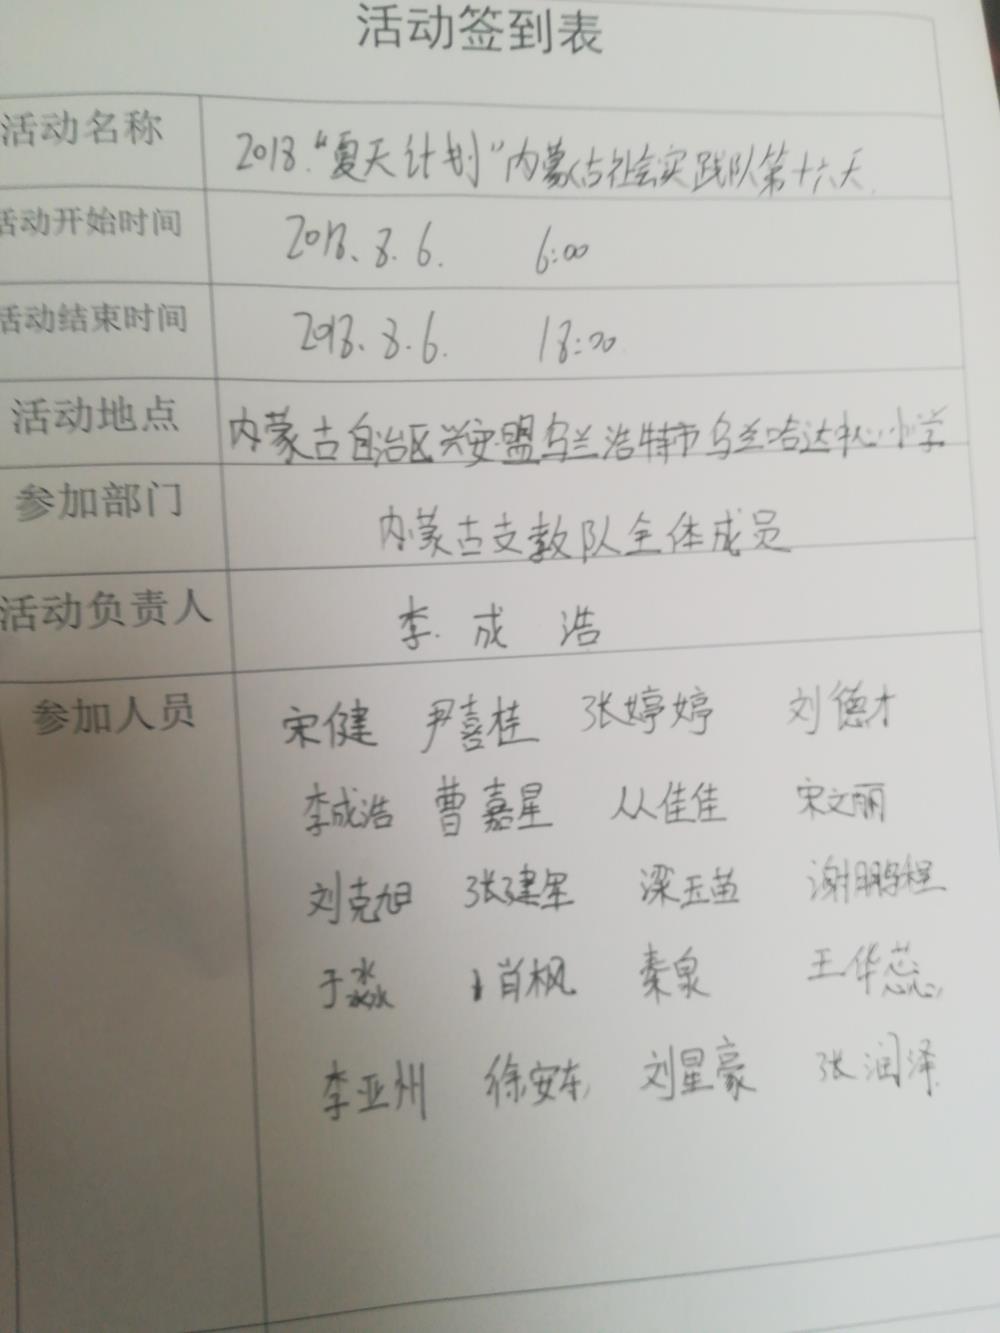 活动签到表
活动名称 2018."夏天计划"内蒙古社会实践队第十六天.
活动开始时间 2018.8.6. 6:00
活动结束时间 2018.8.6. 18:00
活动地点 内蒙古自治区兴安盟乌兰浩特市乌兰哈达中心小学
参加部门 内蒙古支教队全体成员
活动负责人 李成浩
参加人员 宋健 尹喜桂 张婷婷 刘德才
李成浩 曹嘉星 从佳佳 宋文丽
刘克旭 张建军 梁玉苗 谢鹏程
于淼 肖枫 秦泉 王华蕊
李亚州 徐安东 刘星豪 张润泽